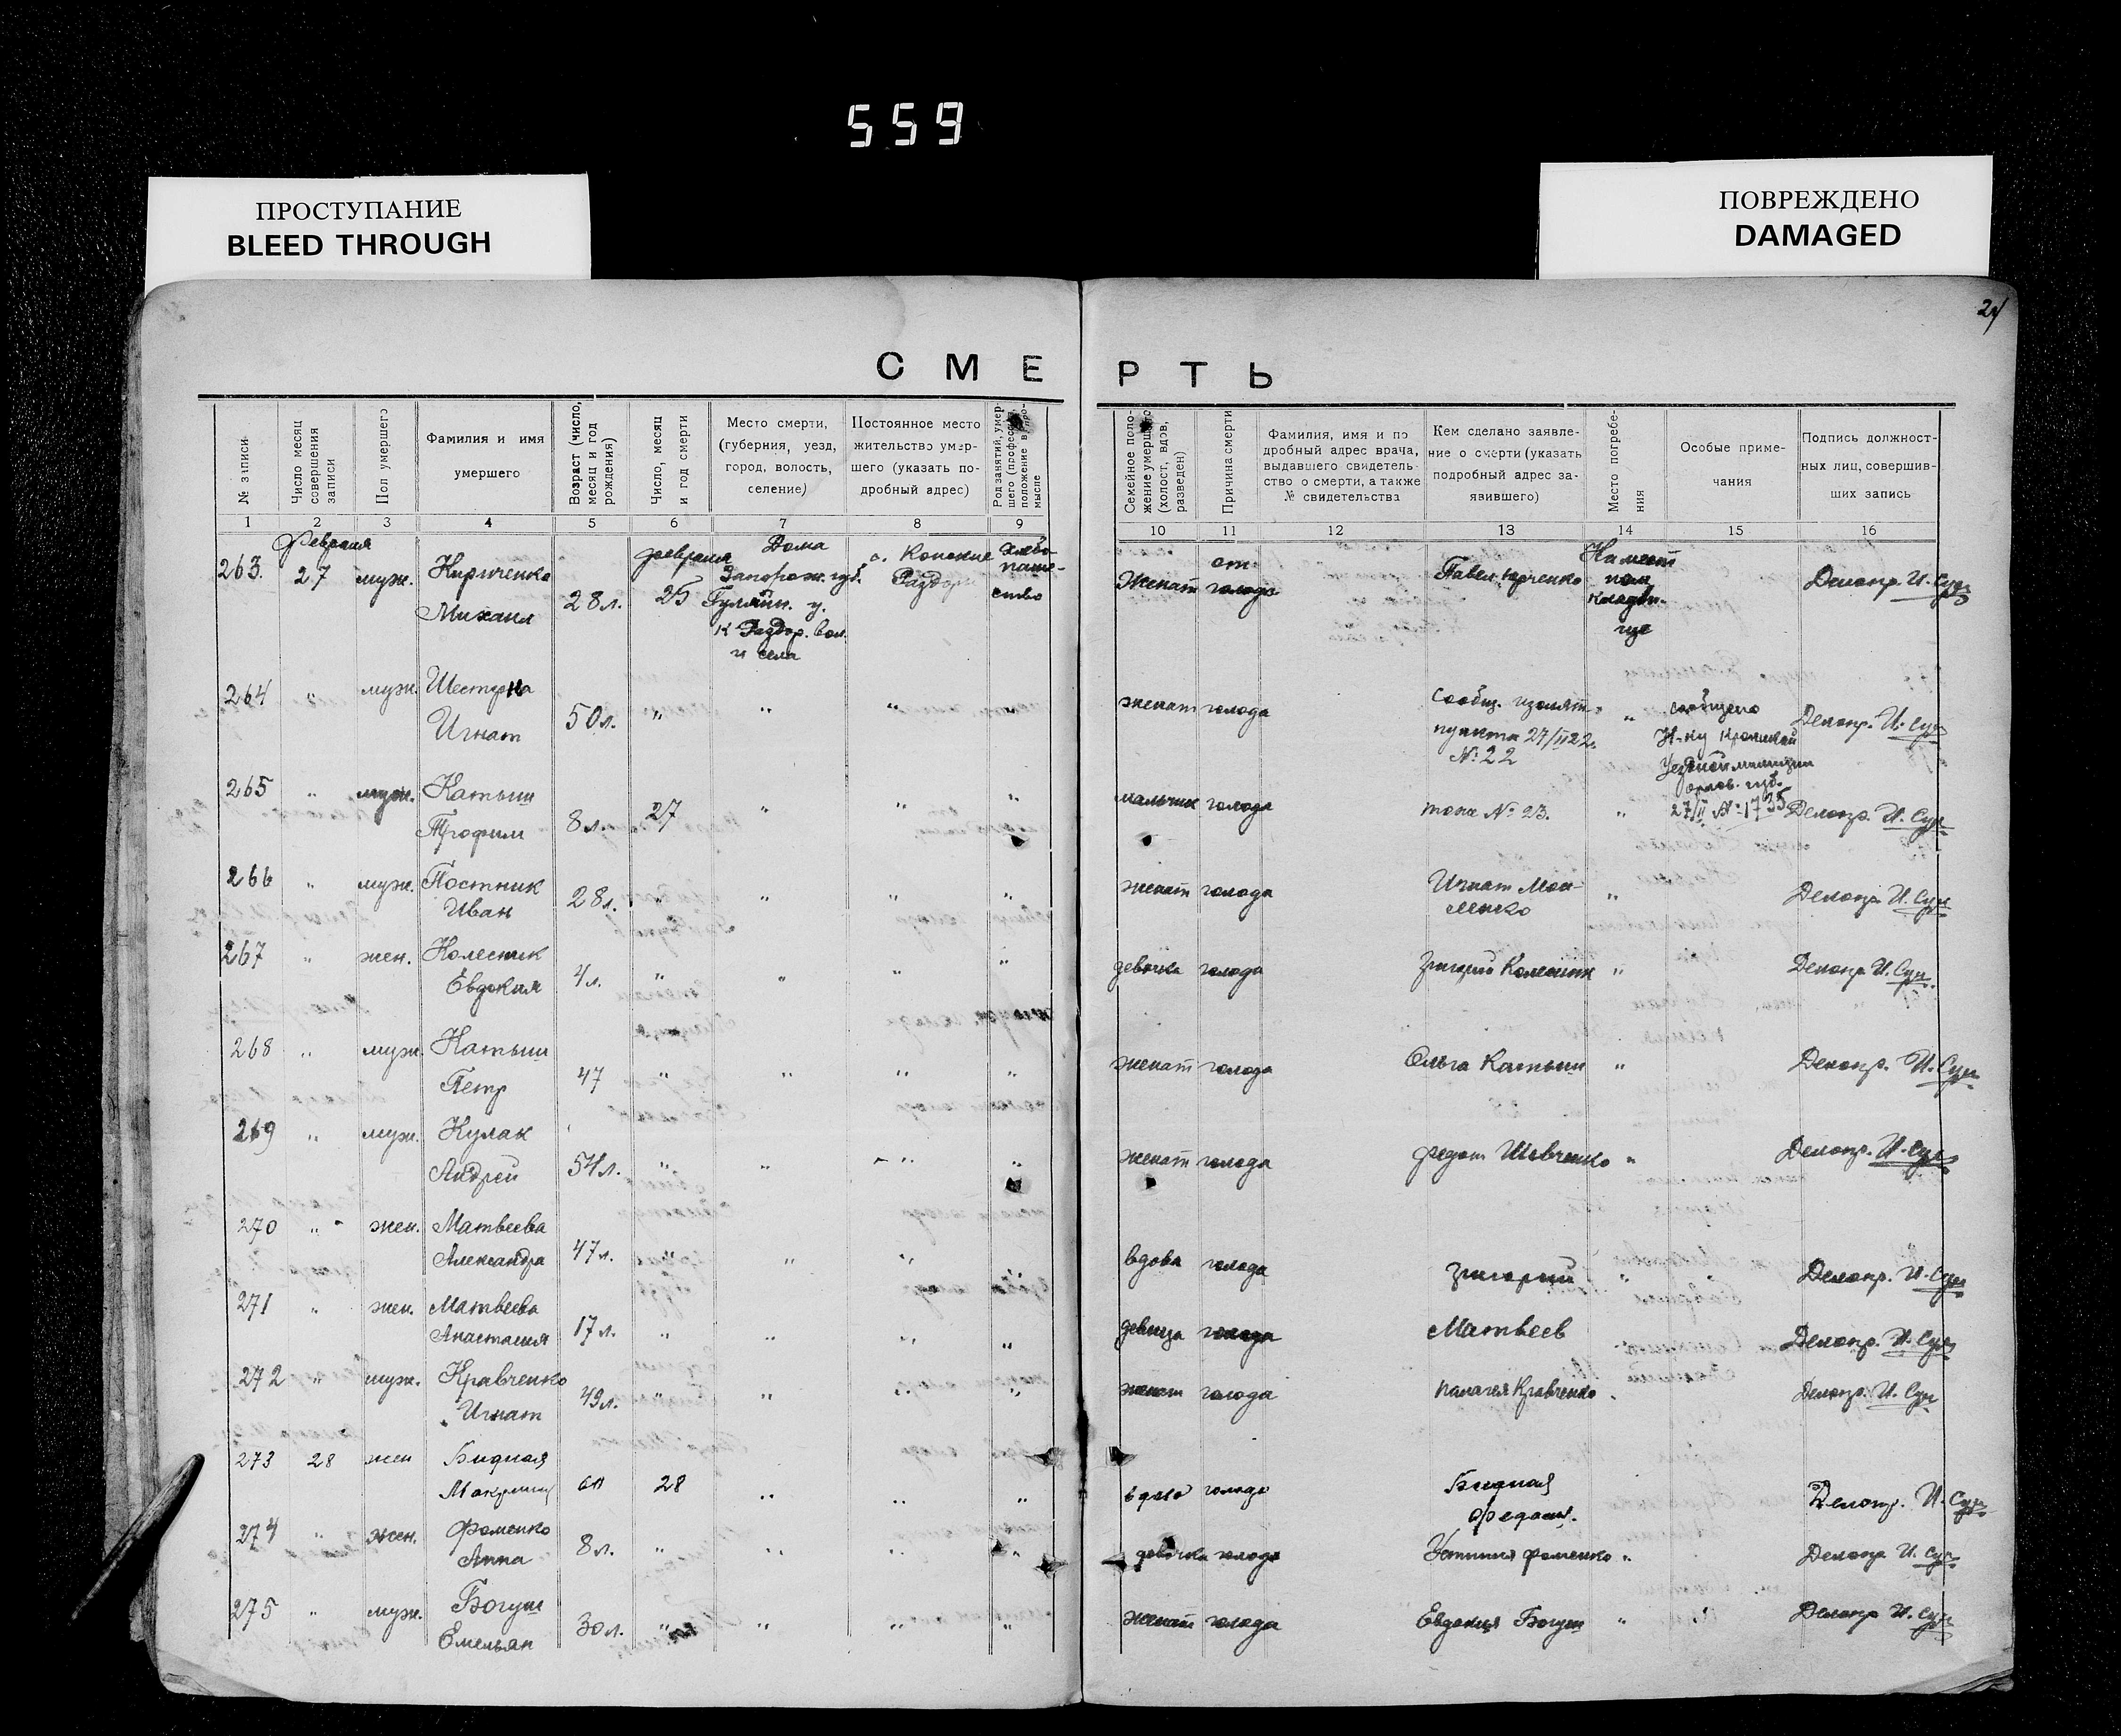 559
ПРОСТУПАНИЕ
BLEED THROUGH
ПОВРЕЖДЕНО
DAMAGED
24
СМЕРТЬ
№ записи
Число месяц совершения записи
Пол умершего
Фамилия и имя умершего
Возраст (число, месяц и год рождения)
Число, месяц и год смерти
Место смерти, (губерния, уезд, город, волость, селение)
Постоянное место жительство умершего (указать подробный адрес)
Род занятий, умершего (профессия, положение в промысле
Семейное положение умершего (холост, вдов, разведен)
Причина смерти
Фамилия, имя и подробный адрес врача, выдавшего свидетельство о смерти, а также № свидетельства
Кем сделано заявление о смерти (указать подробный адрес заявившего)
Место погребения
Особые примечания
Подпись должностных лиц, совершивших запись
1 2 3 4 5 6 7 8 9 10 11 12 13 14 15 16
263. Февраля 27 муж. Кириченко Михаил 28 л. февраля 25 Дома Запорож. губ. Гуляйп. у. К Раздор. вол. и села с. Конские Раздоры хлебопашество женат от голода Павел Юрченко На местном кладбище Делопр. И. Сук
264 " муж. Шестерна Игнат 50 л. " " " женат голода сообщ. изолят. пункта 27/II 22 г. № 22 " сообщено Н-ку Кромской Уездной милиции орлов. губ. 27/II № 1735 Делопр. И. Сук
265 " муж. Катыш Трофим 8 л. 27 " " " мальчик голода тоже № 23. " Делопр. И. Сук
266 " муж. Постник Иван 28 л. " " " " женат голода Игнат Мои- " Делопр И. Сук
267 " жен. Колесник Евдокия 4 л. " " " " девочка голода Григорий Колесник " Делопр И. Сук
268 " муж. Катыш Петр 47 " " " " женат голода Ольга Катыш " Делопр. И. Сук
269 " муж. Кулак Андрей 54 л. " " " " женат голода Федот Шевченко " Делопр. И. Сук
270 " жен. Матвеева Александра 47 л. " " " " вдова голода Григорий " Делопр. И. Сук
271 " жен. Матвеева Анастасия 17 л. " " " " девица голода Матвеев Делопр. И. Сук
272 " муж. Кравченко Игнат 49 л. " " " " женат голода Палагея Кравченко " Делопр. И. Сук
273 28 жен Бидная 28 " " " вдова голода Бидная Делопр. И. Сук
274 " жен. Фоменко Анна 8 л. " " " " девочка голода Устиния Фоменко " Делопр И. Сук
275 " муж. Богуш Емельян 30 л. " " " " женат голода Евдокия Богуш " Делопр И. Сук